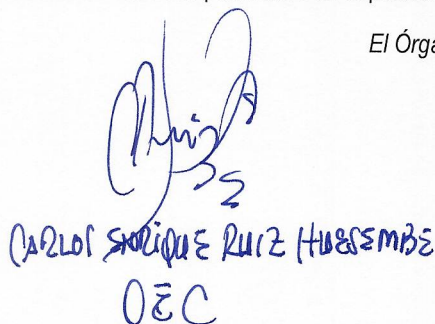 El Órga
CARLOS ENRIQUE RUIZ HUESEMBE
OEC